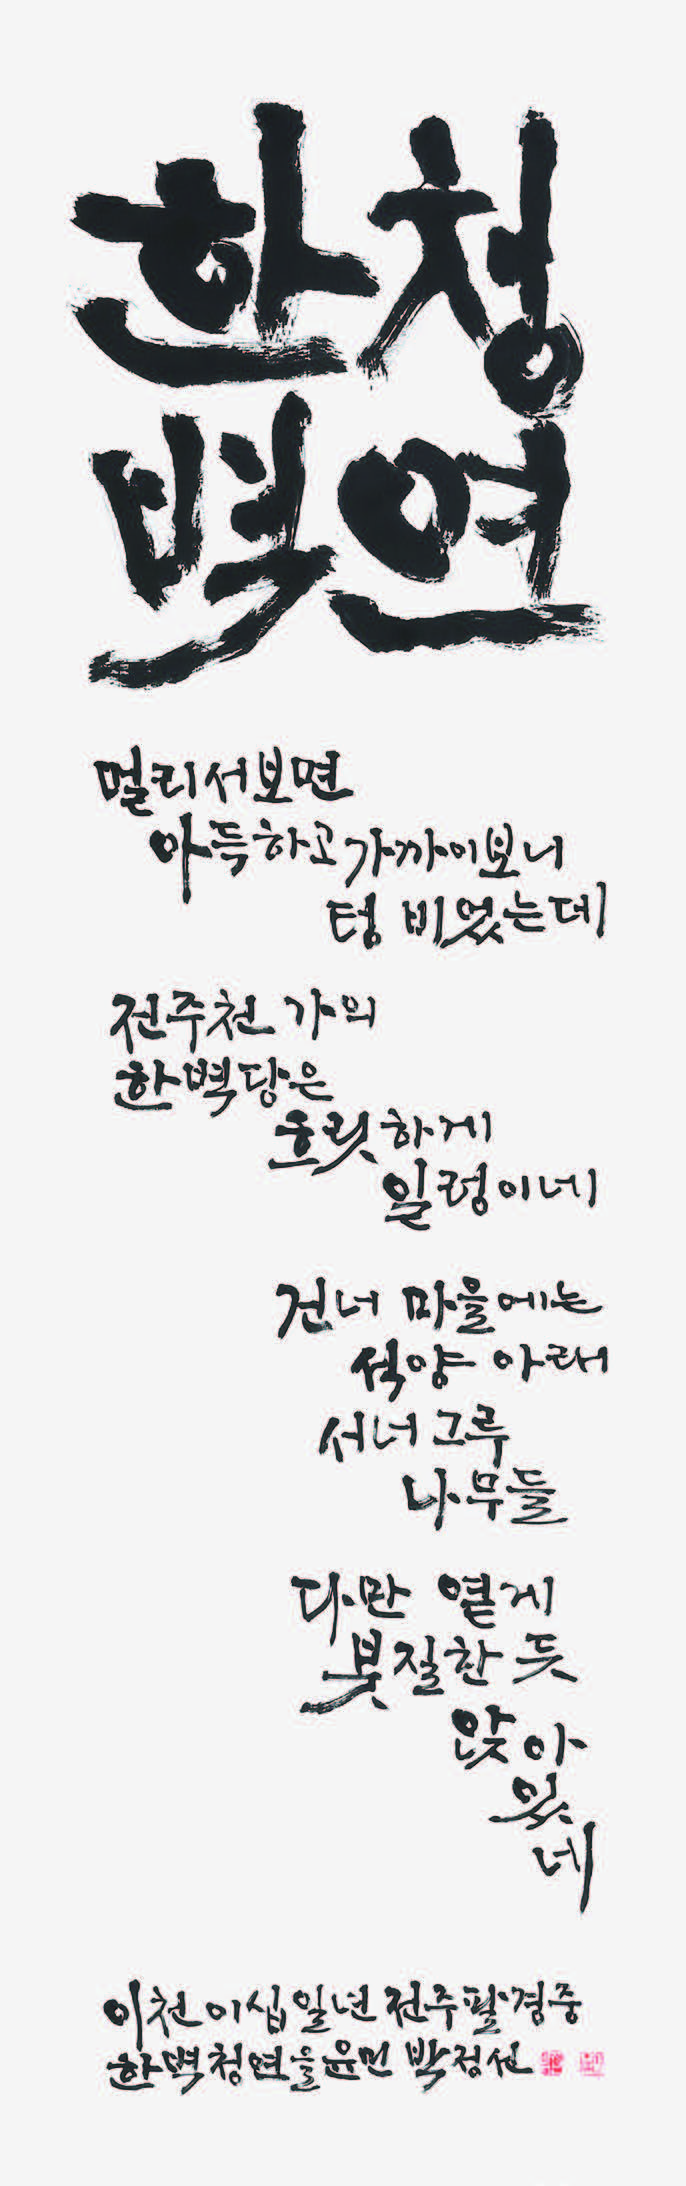 한벽
청연
멀리서보면
아득하고 가까이보니
텅 비었는데
전주천 가의
한벽당은
흐릿하게
일렁이네
건너 마을에는
석양 아래
서너 그루
나무들
다만 옅게
붓질한 듯
앉아
있
네
이천이십일년 전주팔경중
한벽청연을 윤먼 박정선